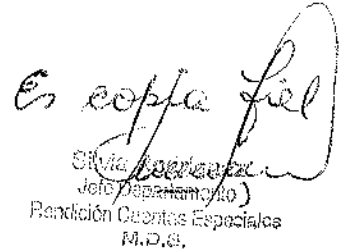 Es copia fiel
Silvia
Jefe Departamento
Rendición Cuentas Especiales
M.D.S.